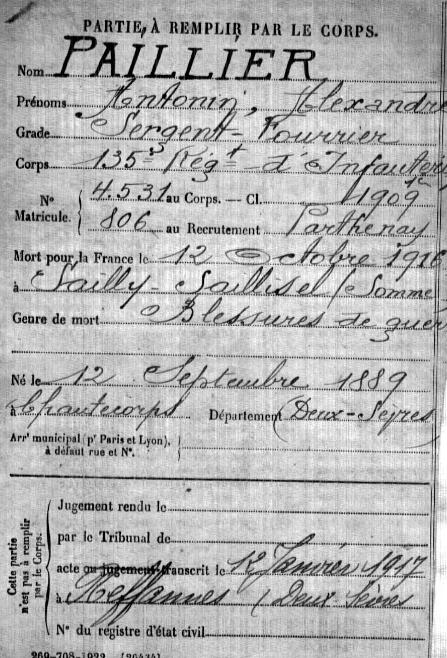 PARTIE À REMPLIR PAR LE CORPS.
Nom PAILLIER
Prénoms Antonin, Alexandre
Grade Sergent-Fourrier
Corps 135e Régt d'Infanterie
No Matricule. 4531 au Corps. — Cl. 1909
806 au Recrutement Parthenay
Mort pour la France le 12 Octobre 1916
à Sailly-Saillisel (Somme
Genre de mort Blessures de guer
Né le 12 Septembre 1889
à Chantecorps Département (Deux-Sèvres)
Arrt municipal (pr Paris et Lyon),
à défaut rue et No.
Cette partie
n'est pas à remplir
par le Corps.
Jugement rendu le
par le Tribunal de
acte ou jugement transcrit le 12 Janvier 1917
à Reffannes (Deux Sèvres
No du registre d'état civil
269-708-1922. [26434]